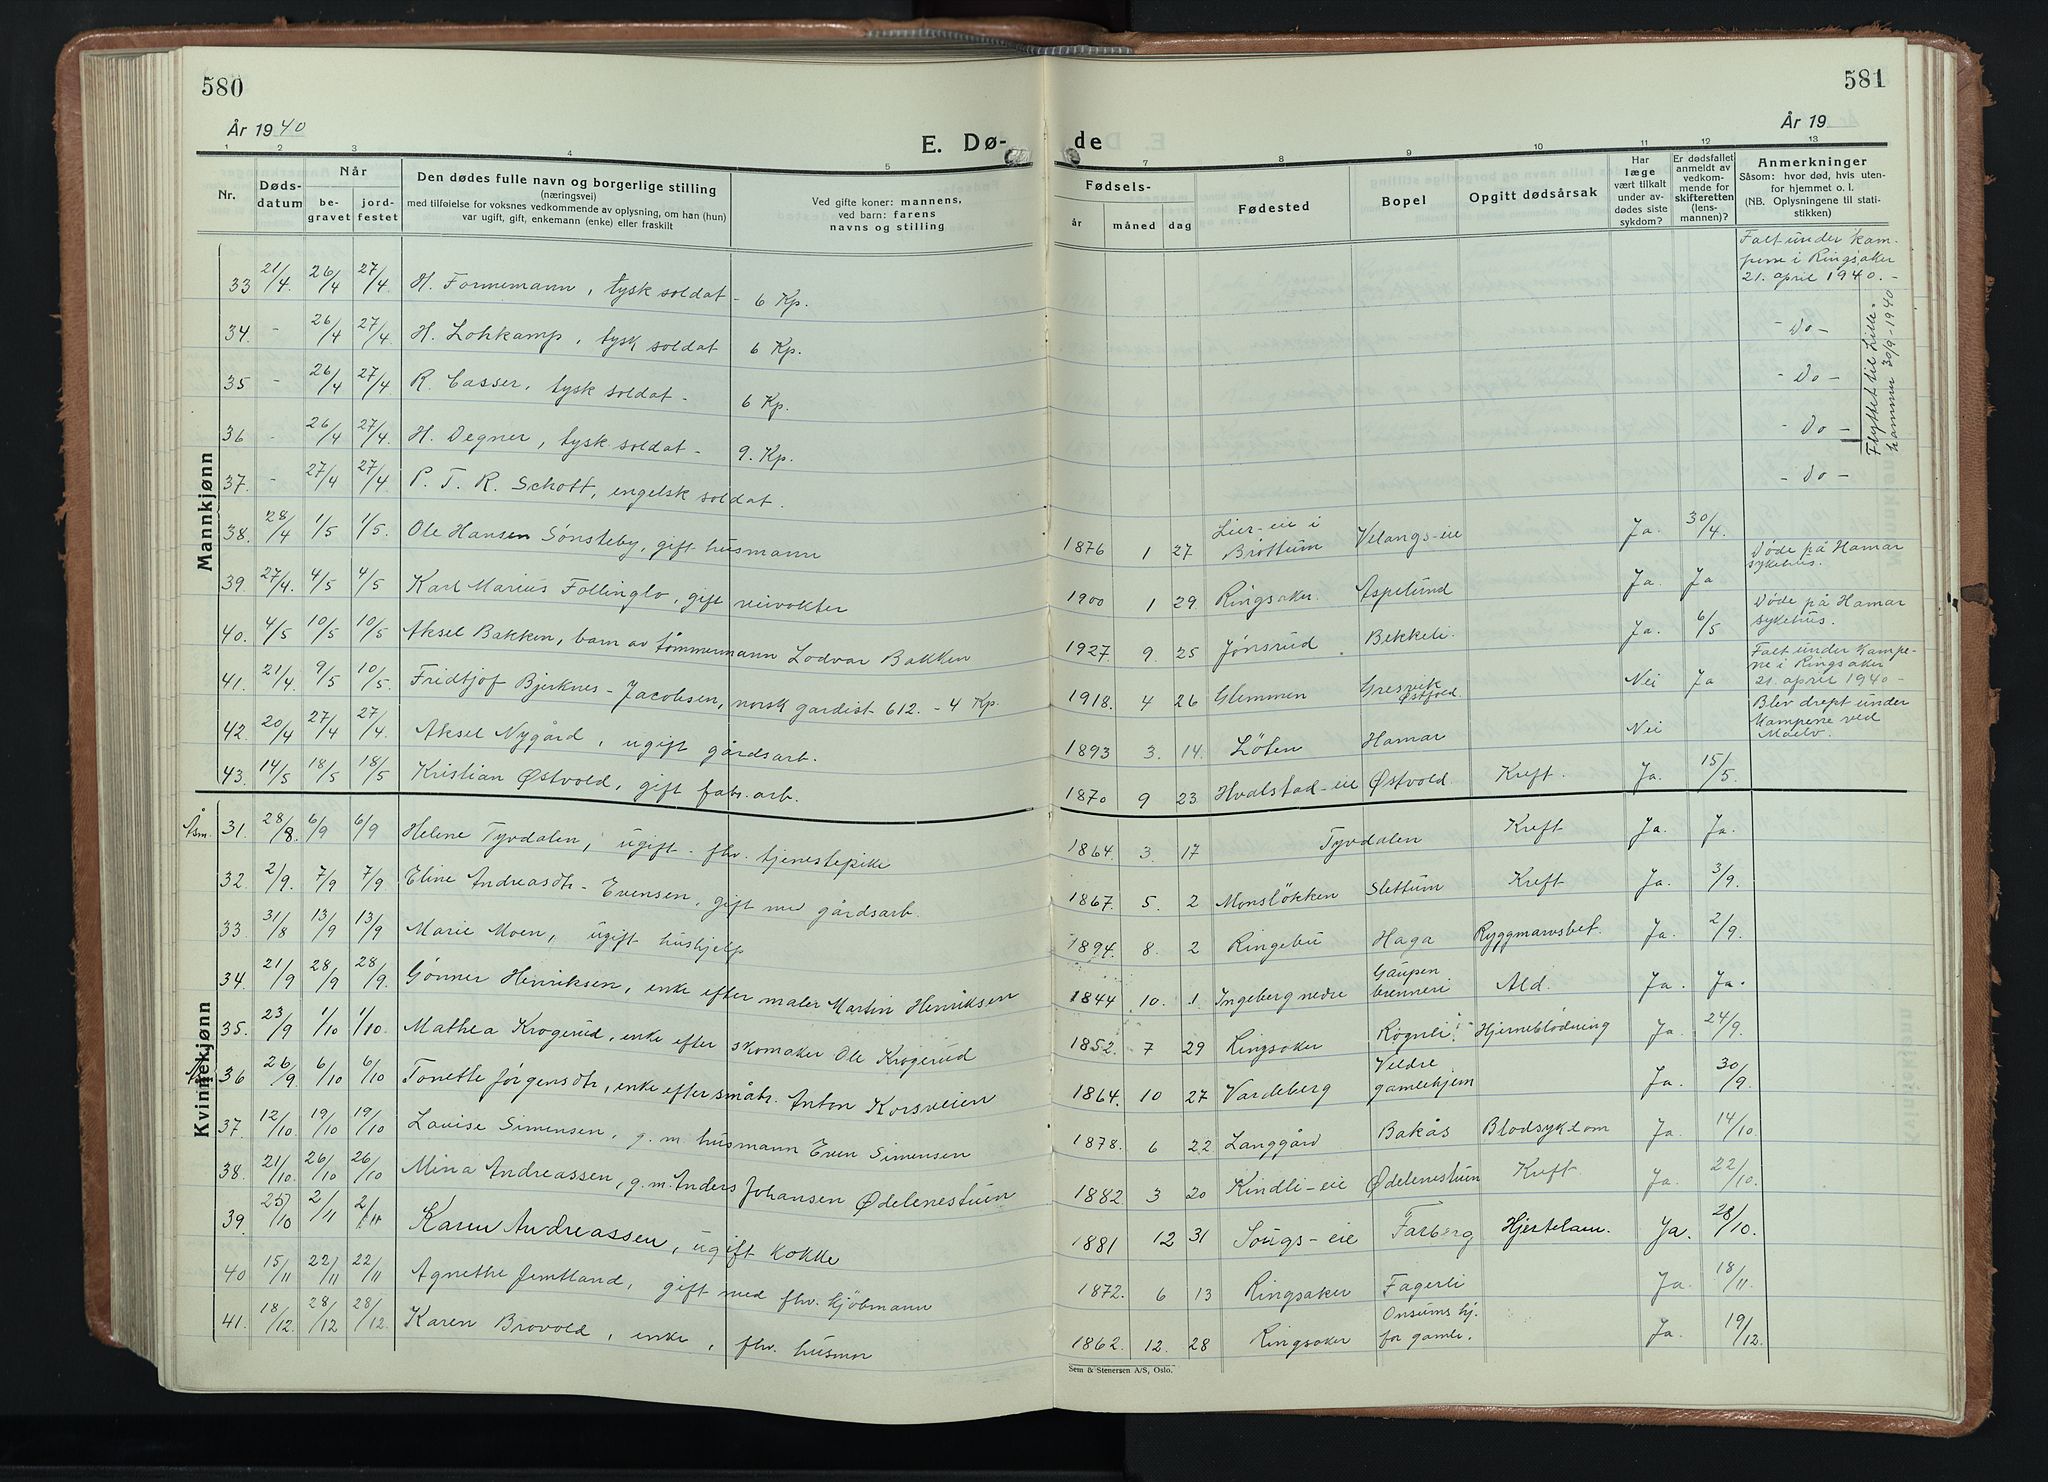 580
År 1940
E. Dø-
1 2 3 4 5
Nr.
Døds-
datum
Når
be-
gravet
jord-
festet
Den dødes fulle navn og borgerlige stilling
(næringsvei)
med tilføielse for voksnes vedkommende av oplysning, om han (hun)
var ugift, gift, enkemann (enke) eller fraskilt
Ved gifte koner: mannens,
ved barn: farens
navns og stilling
Mannkjønn
33 21/4. 26/4 27/4. H. Fornemann, tysk soldat - 6 Kp.
34. - 26/4 27/4. H. Lohkamp, tysk soldat 6 Kp.
35 - 26/4 27/4. R. Casser, tysk soldat - 6 Kp.
36 - 26/4 27/4. H. Degner, tysk soldat - 9. Kp.
37. - 27/4 27/4. P. T. R. Schott, engelsk soldat.
38. 28/4 1/5 1/5. Ole Hansen Sønsteby, gift husmann
39. 27/4. 4/5 4/5. Karl Marius Follinglo, gift veivokter
40. 4/5 10/5 10/5 Aksel Bakken, barn av tømmermann Lodvar Bakken
41. 21/4. 9/5 10/5. Fridtjof Bjerknes - Jacobsen, norsk gardist 612. - 4 Kp.
42. 20/4 27/4 27/4. Aksel Nygård, ugift gårdsarb.
43. 14/5 18/5 18/5 Kristian Østvold, gift fabr.arb.
Kvinnekjønn
Åsm. 31. 28/8. 6/9 6/9 Helene Tyvdalen, ugift - fhv. tjenestepike
32 2/9. 7/9 7/9. Eline Andreasdtr - Evensen, gift m gårdsarb.
33 31/8 13/9 13/9 Marie Moen, ugift hushjelp
34. 21/9 28/9 28/9. Gønner Henriksen, enke efter maler Martin Henriksen
35. 23/9 1/10 1/10. Mathea Krogerud, enke efter skomaker Ole Krogerud
36 26/9. 6/10 6/10 Tonette Jørgensdtr, enke efter småbr. Anton Korsveien
37. 12/10 19/10 19/10 Louise Simensen, g. m. husmann Even Simensen
38. 21/10. 26/10 26/10 Mina Andreassen, g.m. Anders Johansen Ødelenestuen
39. 25/10 2/11 2/11 Karen Andreassen, ugift kokke
40 15/11 22/11 22/11 Agnethe Jemtland, gift med fhv. kjöbmann
41. 18/12. 28/12 28/12. Karen Brovold, enke, fhv. husmor
581
År 19
de
7 8 9 10 11 12 13
Fødsels-
år måned dag
Fødested
Bopel
Opgitt dødsårsak
Har
læge
vært tilkalt
under av-
dødes siste
sykdom?
Er dødsfallet
anmeldt av
vedkom-
mende for
skifteretten
(lens-
mannen)?
Anmerkninger
Såsom: hvor død, hvis uten-
for hjemmet o. l.
(NB. Oplysningene til stati-
stikken)
Falt under kam-
pene i Ringsaker
21. april 1940. -
- Do -
- Do -
- Do -
- Do -
Flyttet til Lille-
hammer 30/9 - 1940
1876 1 27 Lier-eie i Brøttum Velangs-eie Ja. 30/4.
1900 1 29. Ringsaker. Aspelund Ja. Ja Døde på Hamar sykehus.
1927. 9. 25 Jønsrud Bekkeli. Ja. 6/5 Døde på Hamar sykehus.
1918. 4 26 Glemmen Gresvik Østfold. Nei Ja Falt under kampe-
ne i Ringsaker
21. april 1940 -
1893 3. 14. Löten Hamar Nei Blev drept under
kampene ved
Moelv.
1870 9 23 Hvalstad-eie Østvold. Kreft. Ja. 15/5.
1864. 3. 17 Tyvdalen Kreft Ja. Ja.
1867. 5. 2 Monsløkken Slettum Kreft Ja. 3/9.
1894. 8. 2 Ringebu Haga Ryggmarvsbet. Ja. 2/9.
1844 10. 1. Ingeberg nedre Gaupen brenneri Ald. Ja. Ja.
1852. 7 29 Ringsaker Rognli. Hjerneblödning Ja. 24/9.
1864. 10 27 Vardeberg Veldre gamlehjem Ja. 30/9.
1878. 6 22 Langgård Bakås Blodsykdom Ja. 14/10.
1882 3 20 Kindli-eie Ødelenestuen Kreft. Ja. 22/10.
1881 12 31 -eie Farberg Hjertelam. Ja. 28/10.
1872. 6 13 Ringsaker Fagerli Ja. 18/11.
1862. 12. 28 Ringsaker Onsums hj. for gamle. Ja. 19/12.
Sem & Stenersen A/S, Oslo.